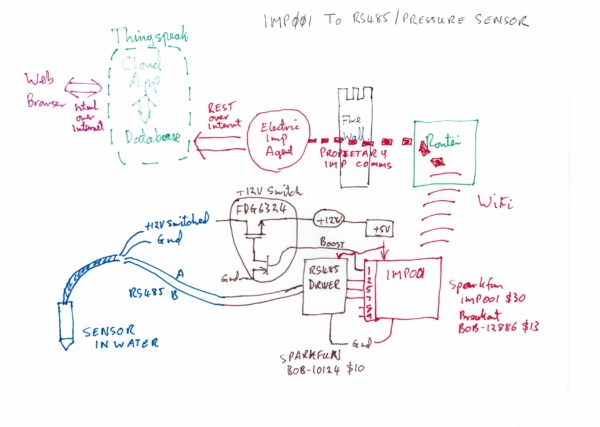 IMP001 TO RS485/PRESSURE SENSOR
Thingspeak
Cloud
App
Database
Web
Browser
html
over
Internet
REST
over
Internet
Electric
Imp
Agent
Fire
Wall
PROPIETARY
IMP COMMS
Router
WiFi
+12V Switch
FDG6324
+12V
+5V
+12V Switched
Gnd
Boost
Gnd
A
RS485 B
RS485
DRIVER
1
2
5
7
8
9
IMP001
Sparkfun
IMP001 $30
Breakout
BOB-12886 $13
SENSOR
IN WATER
Gnd
SPARKFUN
BOB-10124 $10